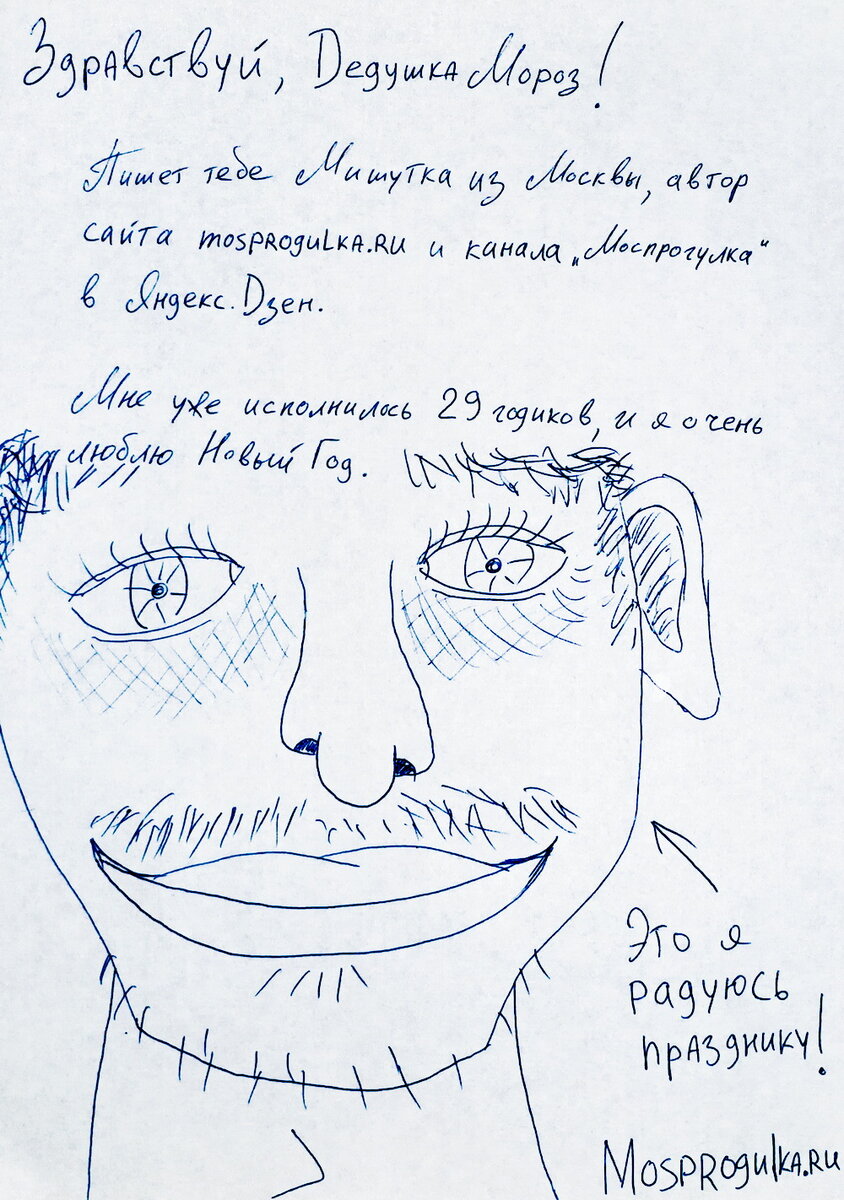 Здравствуй, Дедушка Мороз!
Пишет тебе Мишутка из Москвы, автор
сайта mosprogulka.ru и канала „Моспрогулка“
в Яндекс.Дзен.
Мне уже исполнилось 29 годиков, и я очень
люблю Новый Год.
Это я
радуюсь
празднику!
Mosprogulka.ru